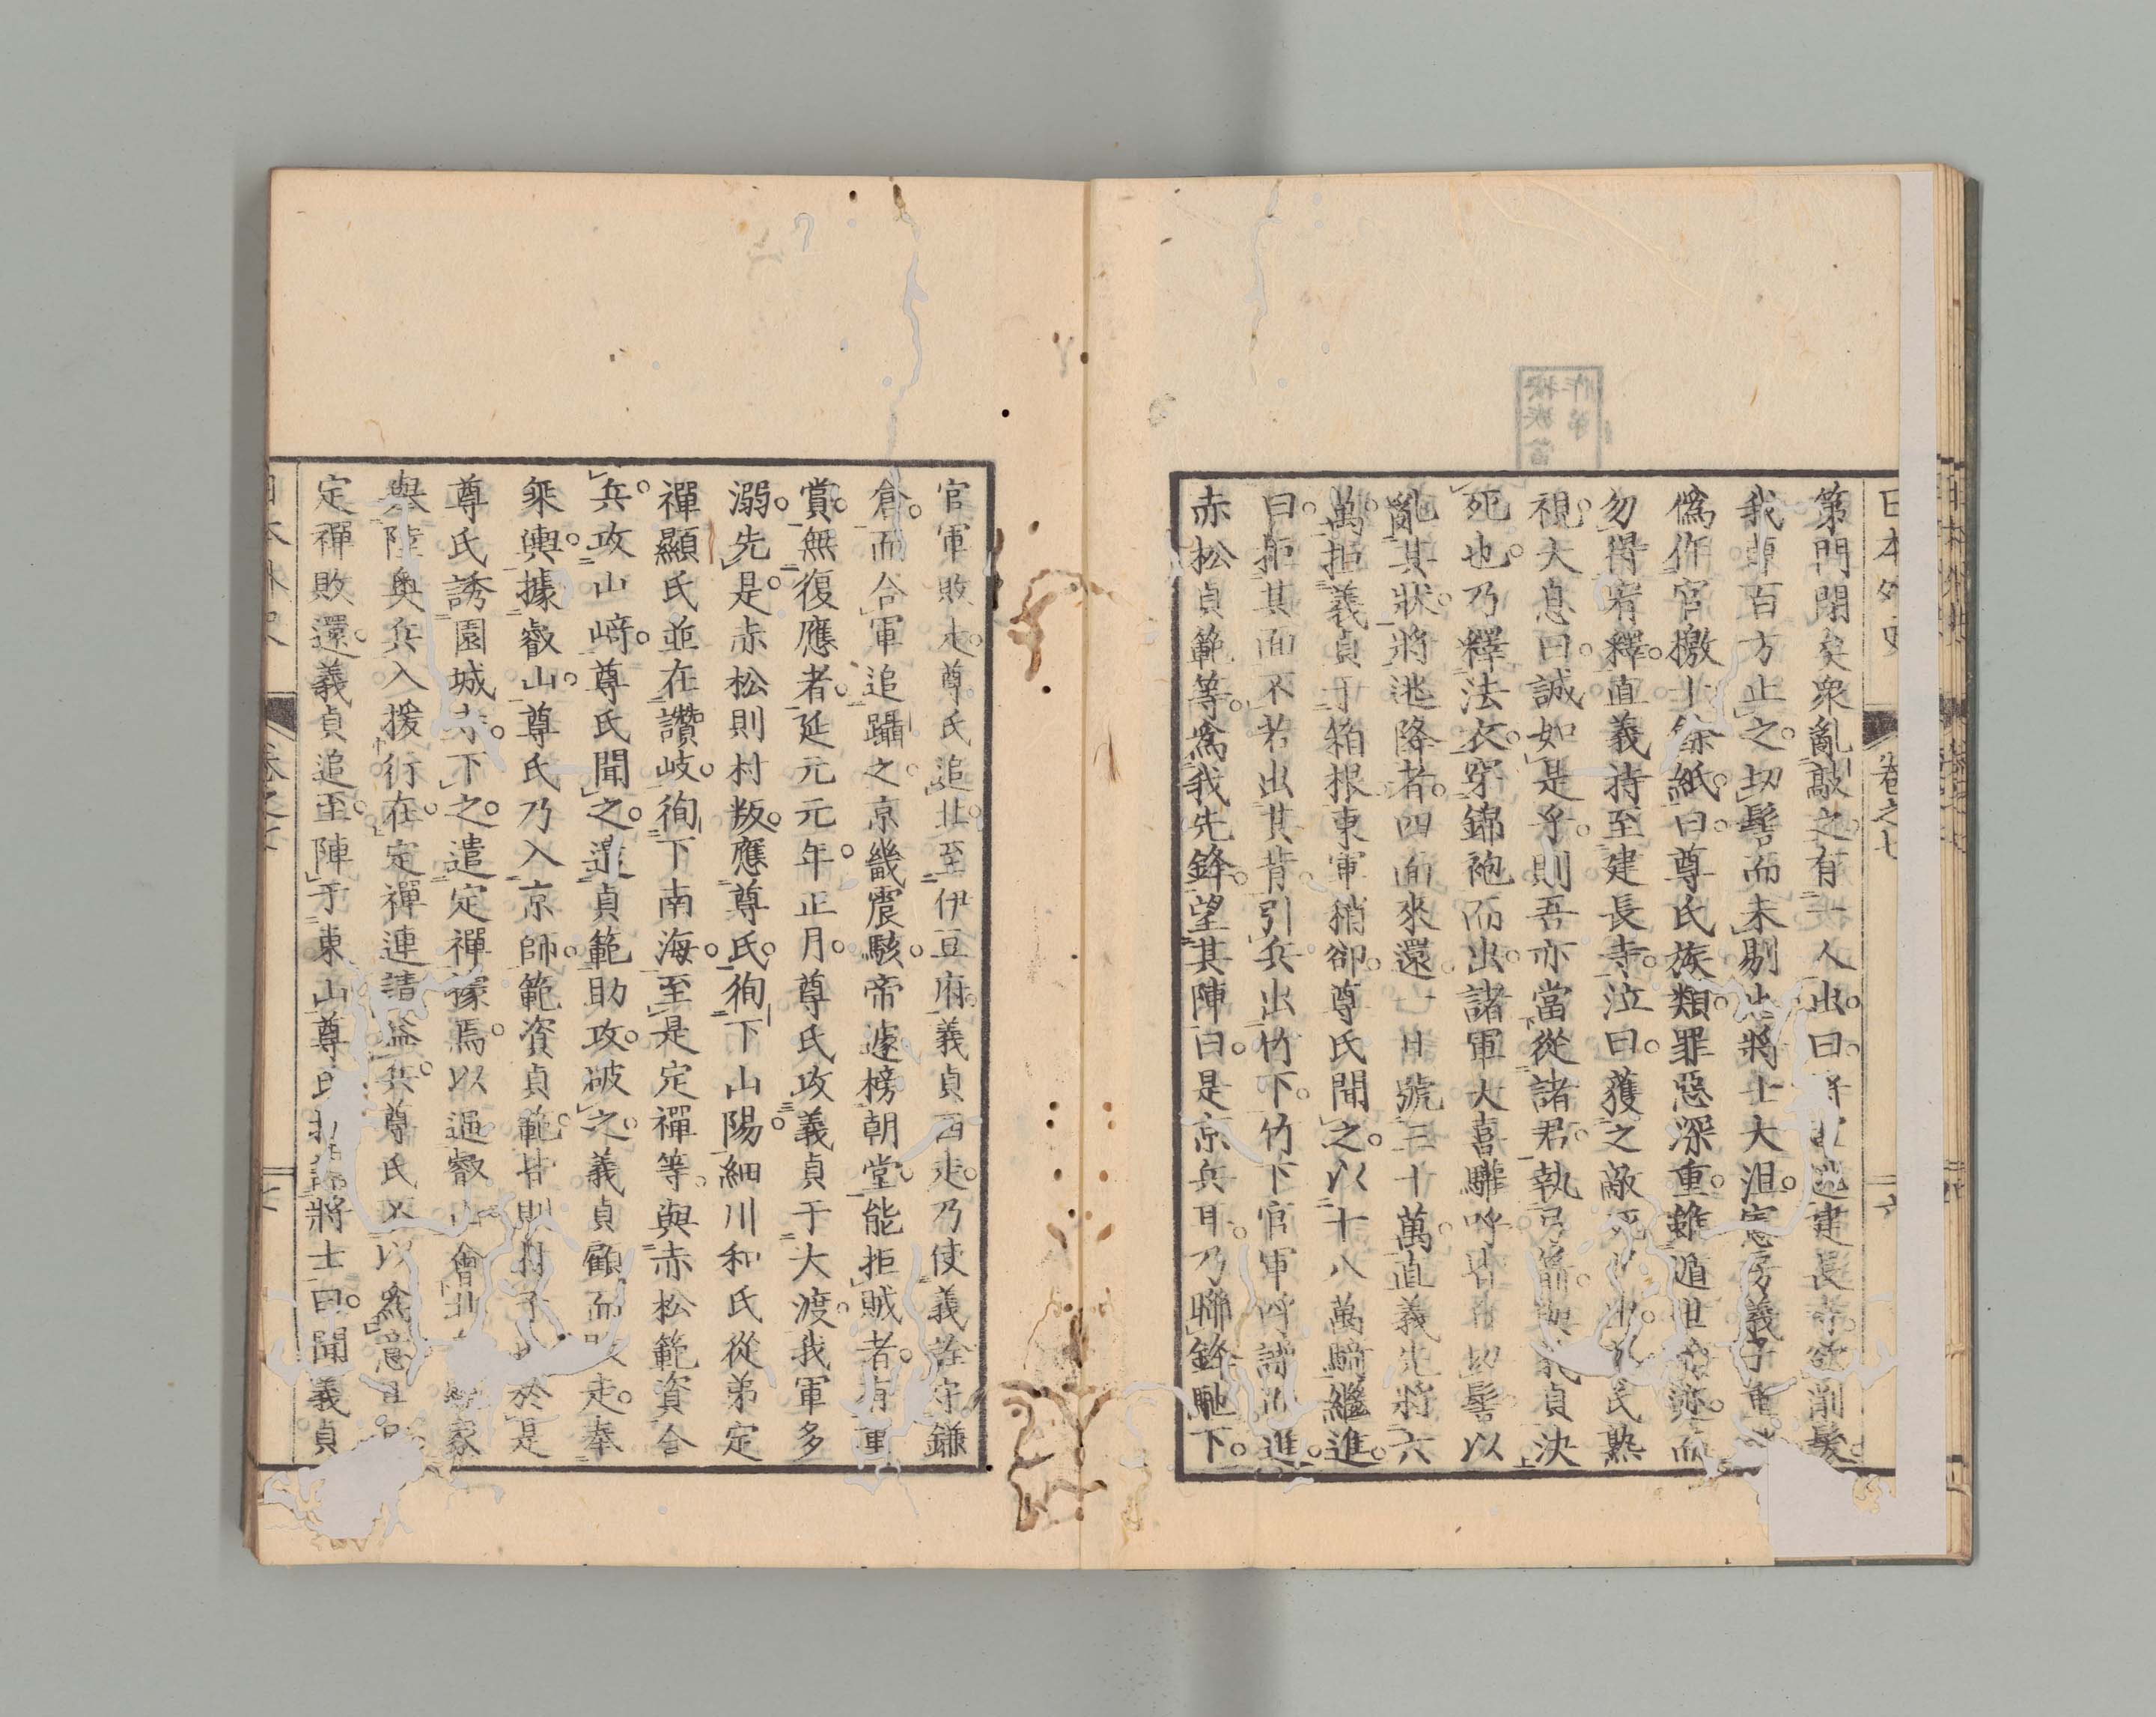 日本外史
卷之七
六
第門閉矣衆亂敲之有一人出曰將軍逃建長寺欲削髮
我輩百方止之切髻而未剔也將士大沮憲房義子重
僞作官檄十餘紙曰尊氏族類罪惡深重雖遁世
勿得宥釋直義持至建長寺泣曰獲之敵尊氏熟
視大息曰誠如是乎則吾亦當從諸君執弓箭與義貞決
死也乃釋法衣穿錦袍而出諸軍大喜驩呼皆切髻以
亂其狀將逃降者四面來還一日號三十萬直義先將六
萬拒義貞于箱根東軍稍卻尊氏聞之以十八萬騎繼進
曰拒其面不若出其背引兵出竹下竹下官軍呼譟而進
赤松貞範等爲我先鋒望其陣曰是京兵耳乃聯鋒馳下
官軍敗走尊氏追北至伊豆府義貞西走乃使義詮守鎌
倉而合軍追躡之京畿震駭帝遽榜朝堂能拒賊者有重
賞無復應者延元元年正月尊氏攻義貞于大渡我軍多
溺先是赤松則村叛應尊氏徇下山陽細川和氏從弟定
禪顯氏並在讚岐徇下南海至是定禪等與赤松範資合
兵攻山﨑尊氏聞之遣貞範助攻破之義貞顧而走奉
乘輿據叡山尊氏乃入京師範資貞範甘則村子於是
尊氏誘園城寺下之遣定禪據焉以逼叡山會北家
與陸奧兵入援行在定禪連請益兵尊氏不以爲意
定禪敗還義貞追至陣于東山尊氏指諸將士曰聞義貞
日本外史
卷之七